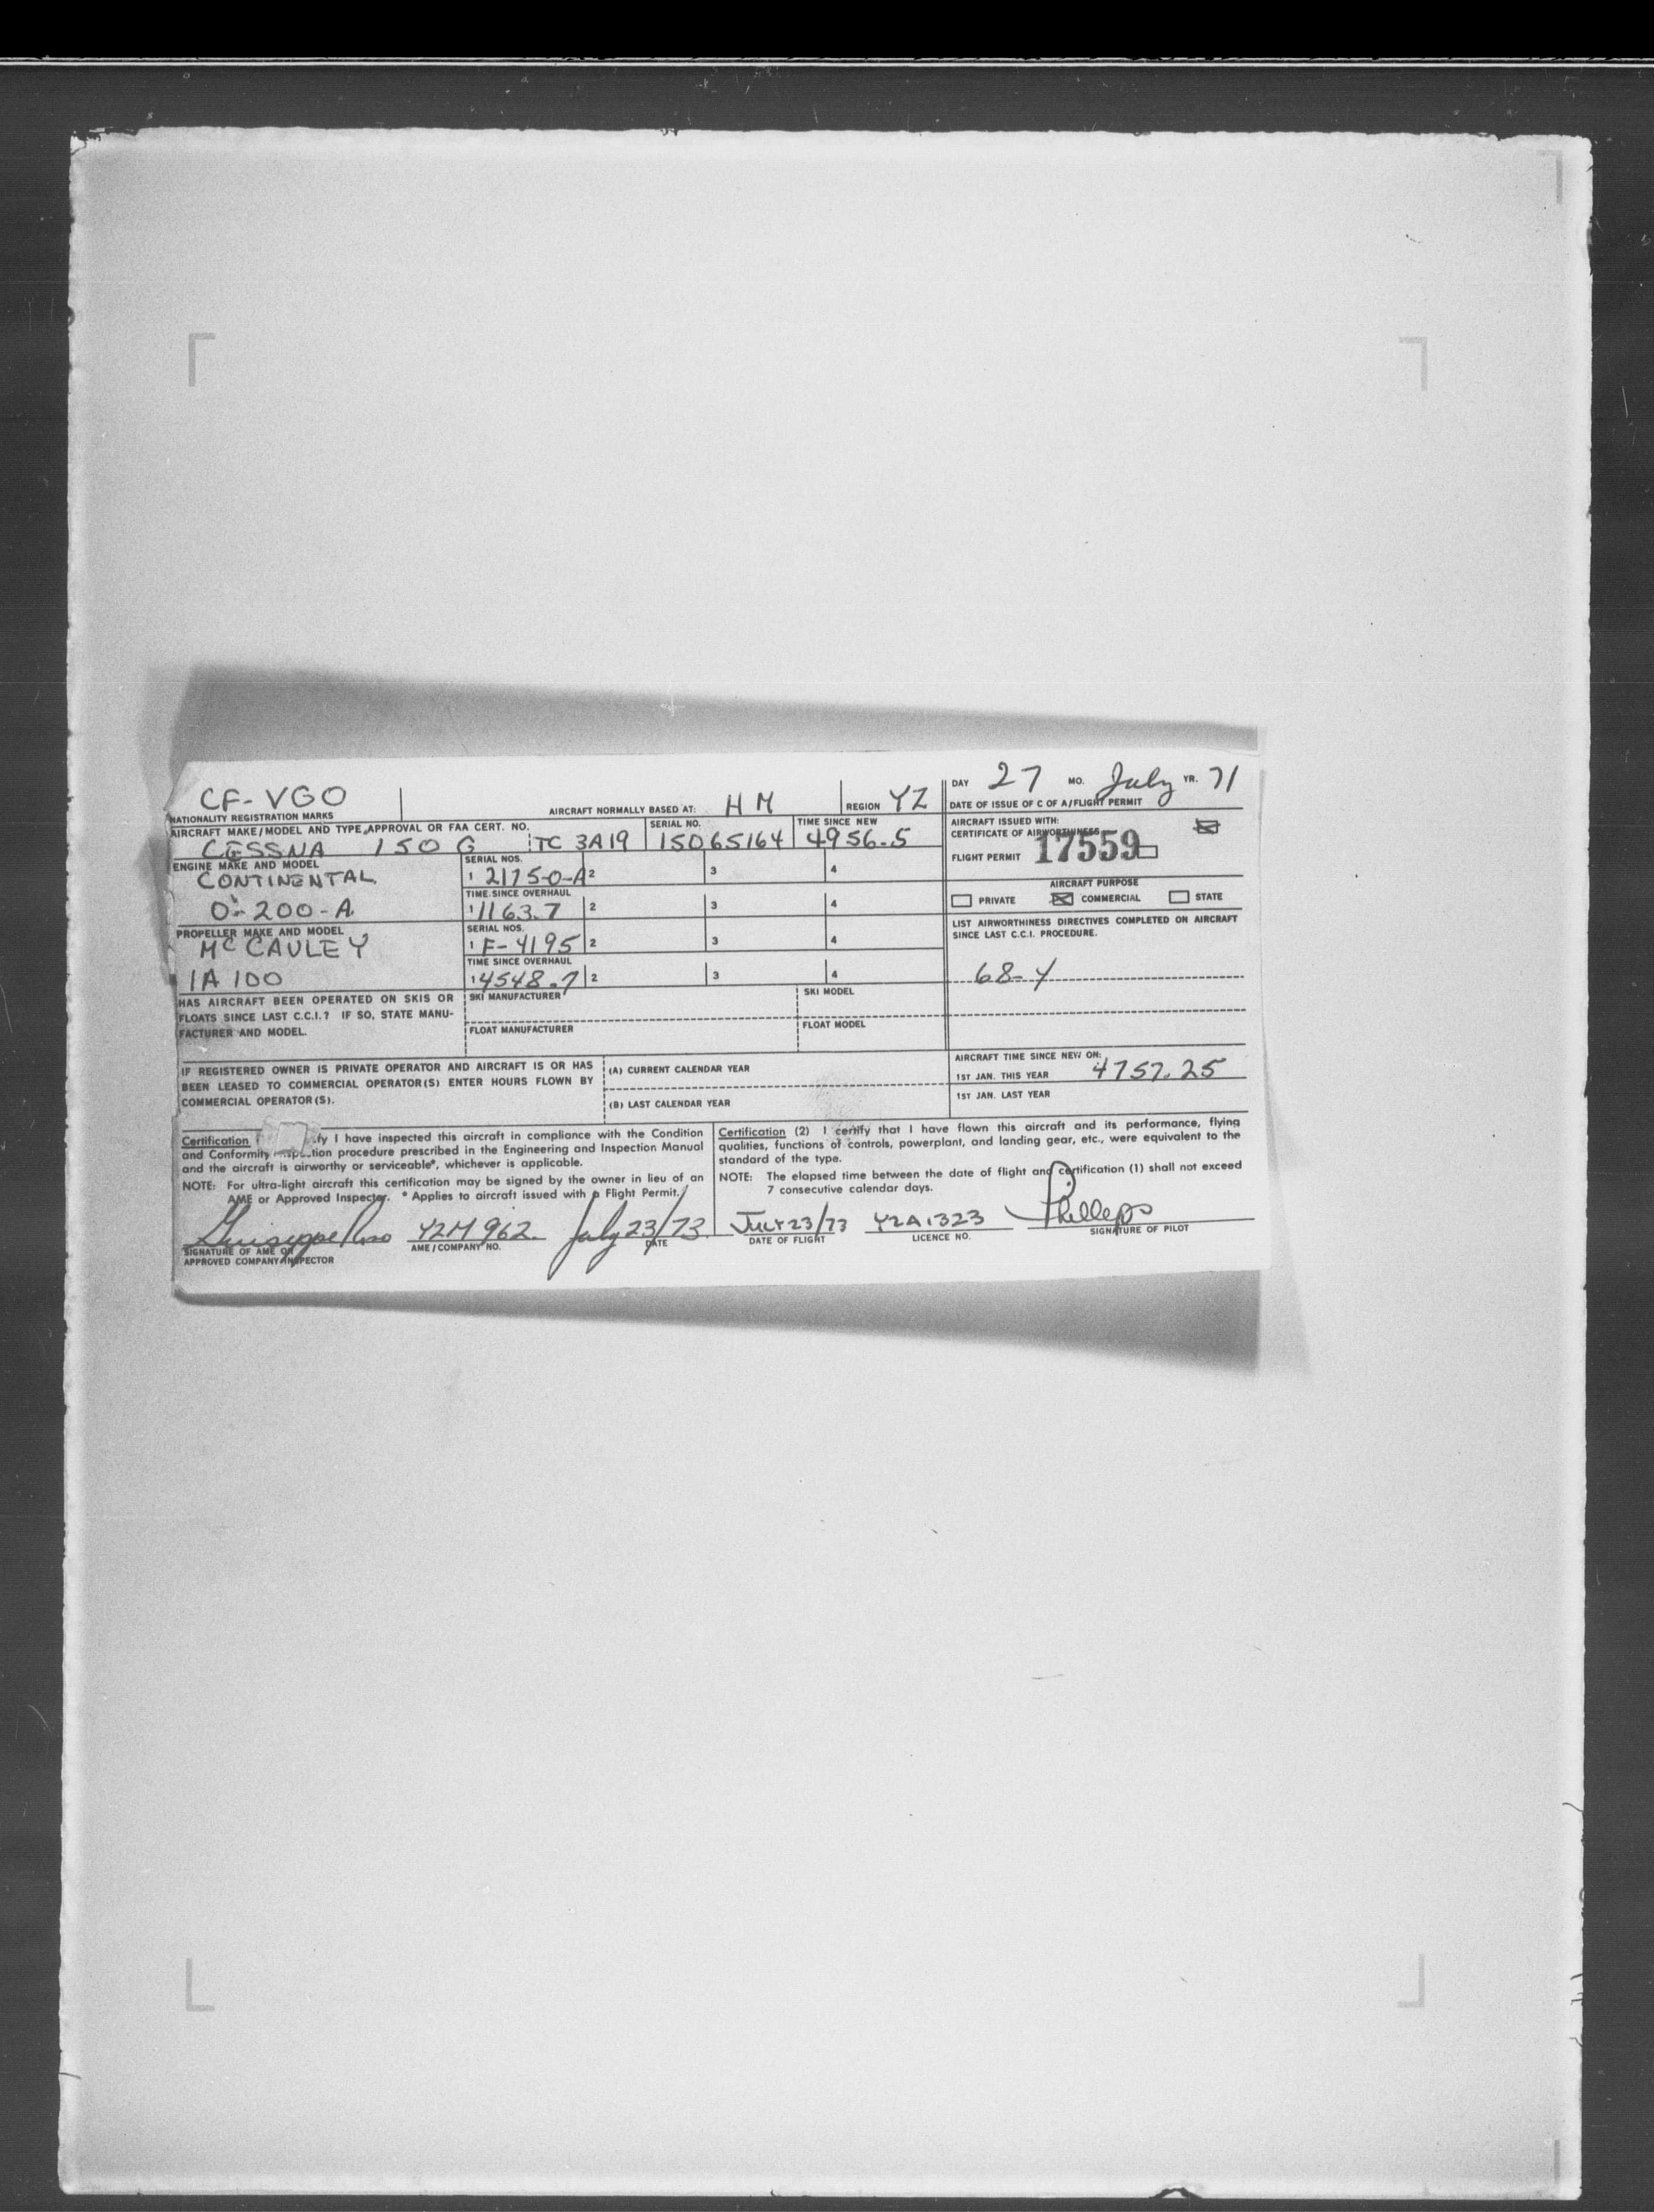 CF-VGO
NATIONALITY REGISTRATION MARKS
AIRCRAFT NORMALLY BASED AT: HM
REGION YZ
DAY 27 MO. July YR. 71
DATE OF ISSUE OF C OF A/FLIGHT PERMIT
AIRCRAFT MAKE/MODEL AND TYPE APPROVAL OR FAA CERT. NO.
CESSNA 150 G TC 3A19
SERIAL NO.
15065164
TIME SINCE NEW
4956.5
AIRCRAFT ISSUED WITH:
CERTIFICATE OF AIRWORTHINESS
FLIGHT PERMIT 17559
ENGINE MAKE AND MODEL
CONTINENTAL
O-200-A
SERIAL NOS.
1 2175-0-A 2 3 4
TIME SINCE OVERHAUL
1 1163.7 2 3 4
AIRCRAFT PURPOSE
PRIVATE COMMERCIAL STATE
PROPELLER MAKE AND MODEL
McCAULEY
1A 100
SERIAL NOS.
1 F-4195 2 3 4
TIME SINCE OVERHAUL
1 4548.7 2 3 4
LIST AIRWORTHINESS DIRECTIVES COMPLETED ON AIRCRAFT
SINCE LAST C.C.I. PROCEDURE.
68-4
HAS AIRCRAFT BEEN OPERATED ON SKIS OR
FLOATS SINCE LAST C.C.I.? IF SO, STATE MANU-
FACTURER AND MODEL.
SKI MANUFACTURER
SKI MODEL
FLOAT MANUFACTURER
FLOAT MODEL
IF REGISTERED OWNER IS PRIVATE OPERATOR AND AIRCRAFT IS OR HAS
BEEN LEASED TO COMMERCIAL OPERATOR(S) ENTER HOURS FLOWN BY
COMMERCIAL OPERATOR(S).
(A) CURRENT CALENDAR YEAR
(B) LAST CALENDAR YEAR
AIRCRAFT TIME SINCE NEW ON:
1ST JAN. THIS YEAR 4757.25
1ST JAN. LAST YEAR
Certification I have inspected this aircraft in compliance with the Condition
and Conformity procedure prescribed in the Engineering and Inspection Manual
and the aircraft is airworthy or serviceable*, whichever is applicable.
NOTE: For ultra-light aircraft this certification may be signed by the owner in lieu of an
AME or Approved Inspector. * Applies to aircraft issued with a Flight Permit.
Giuseppe YZM 962. July 23/73.
SIGNATURE OF AME OR
APPROVED COMPANY INSPECTOR
AME/COMPANY NO.
DATE
Certification (2) I certify that I have flown this aircraft and its performance, flying
qualities, functions of controls, powerplant, and landing gear, etc., were equivalent to the
standard of the type.
NOTE: The elapsed time between the date of flight and certification (1) shall not exceed
7 consecutive calendar days.
JULY 23/73 YZA 1323 Phillips
DATE OF FLIGHT
LICENCE NO.
SIGNATURE OF PILOT